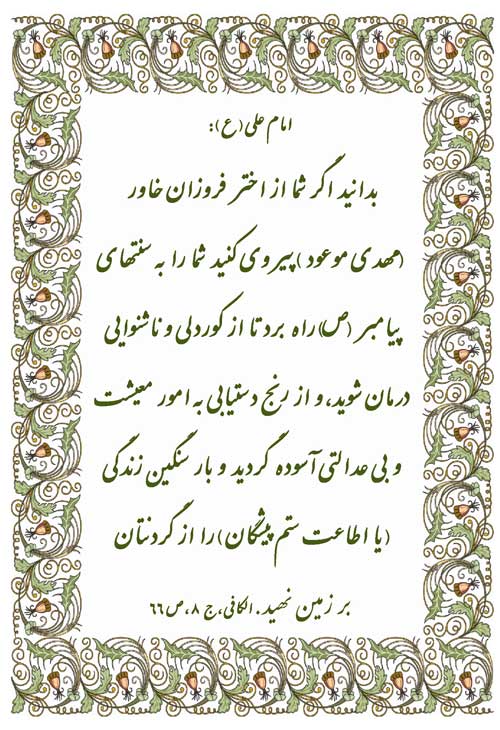 امام علی(ع):
بدانید اگر شما از اختر فروزان خاور
(مهدی موعود) پیروی کنید شما را به سنتهای
پیامبر (ص) راه برد تا از کوردلی و ناشنوایی
درمان شوید، و از رنج دستیابی به امور معیشت
و بی عدالتی آسوده گردید و بار سنگین زندگی
(یا اطاعت ستم پیشگان) را از گردنتان
بر زمین نهید. الکافی، ج ۸، ص ۶۶